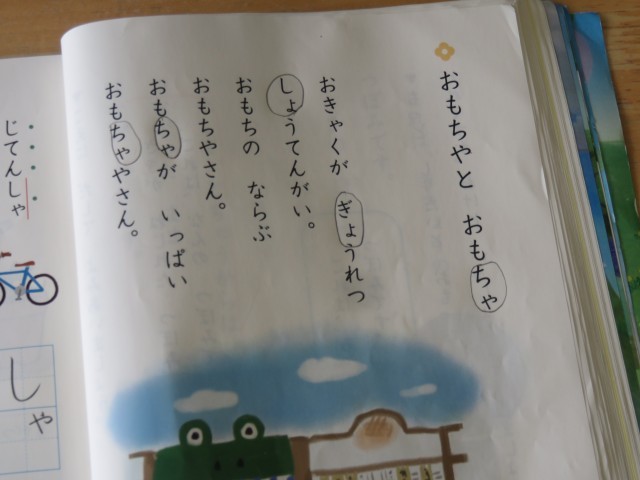 おもちやと　おもちゃ
おきゃくが　ぎょうれつ
しょうてんがい。
おもちの　ならぶ
おもちやさん。
おもちゃが　いっぱい
おもちゃやさん。
じてんしゃ
しゃ